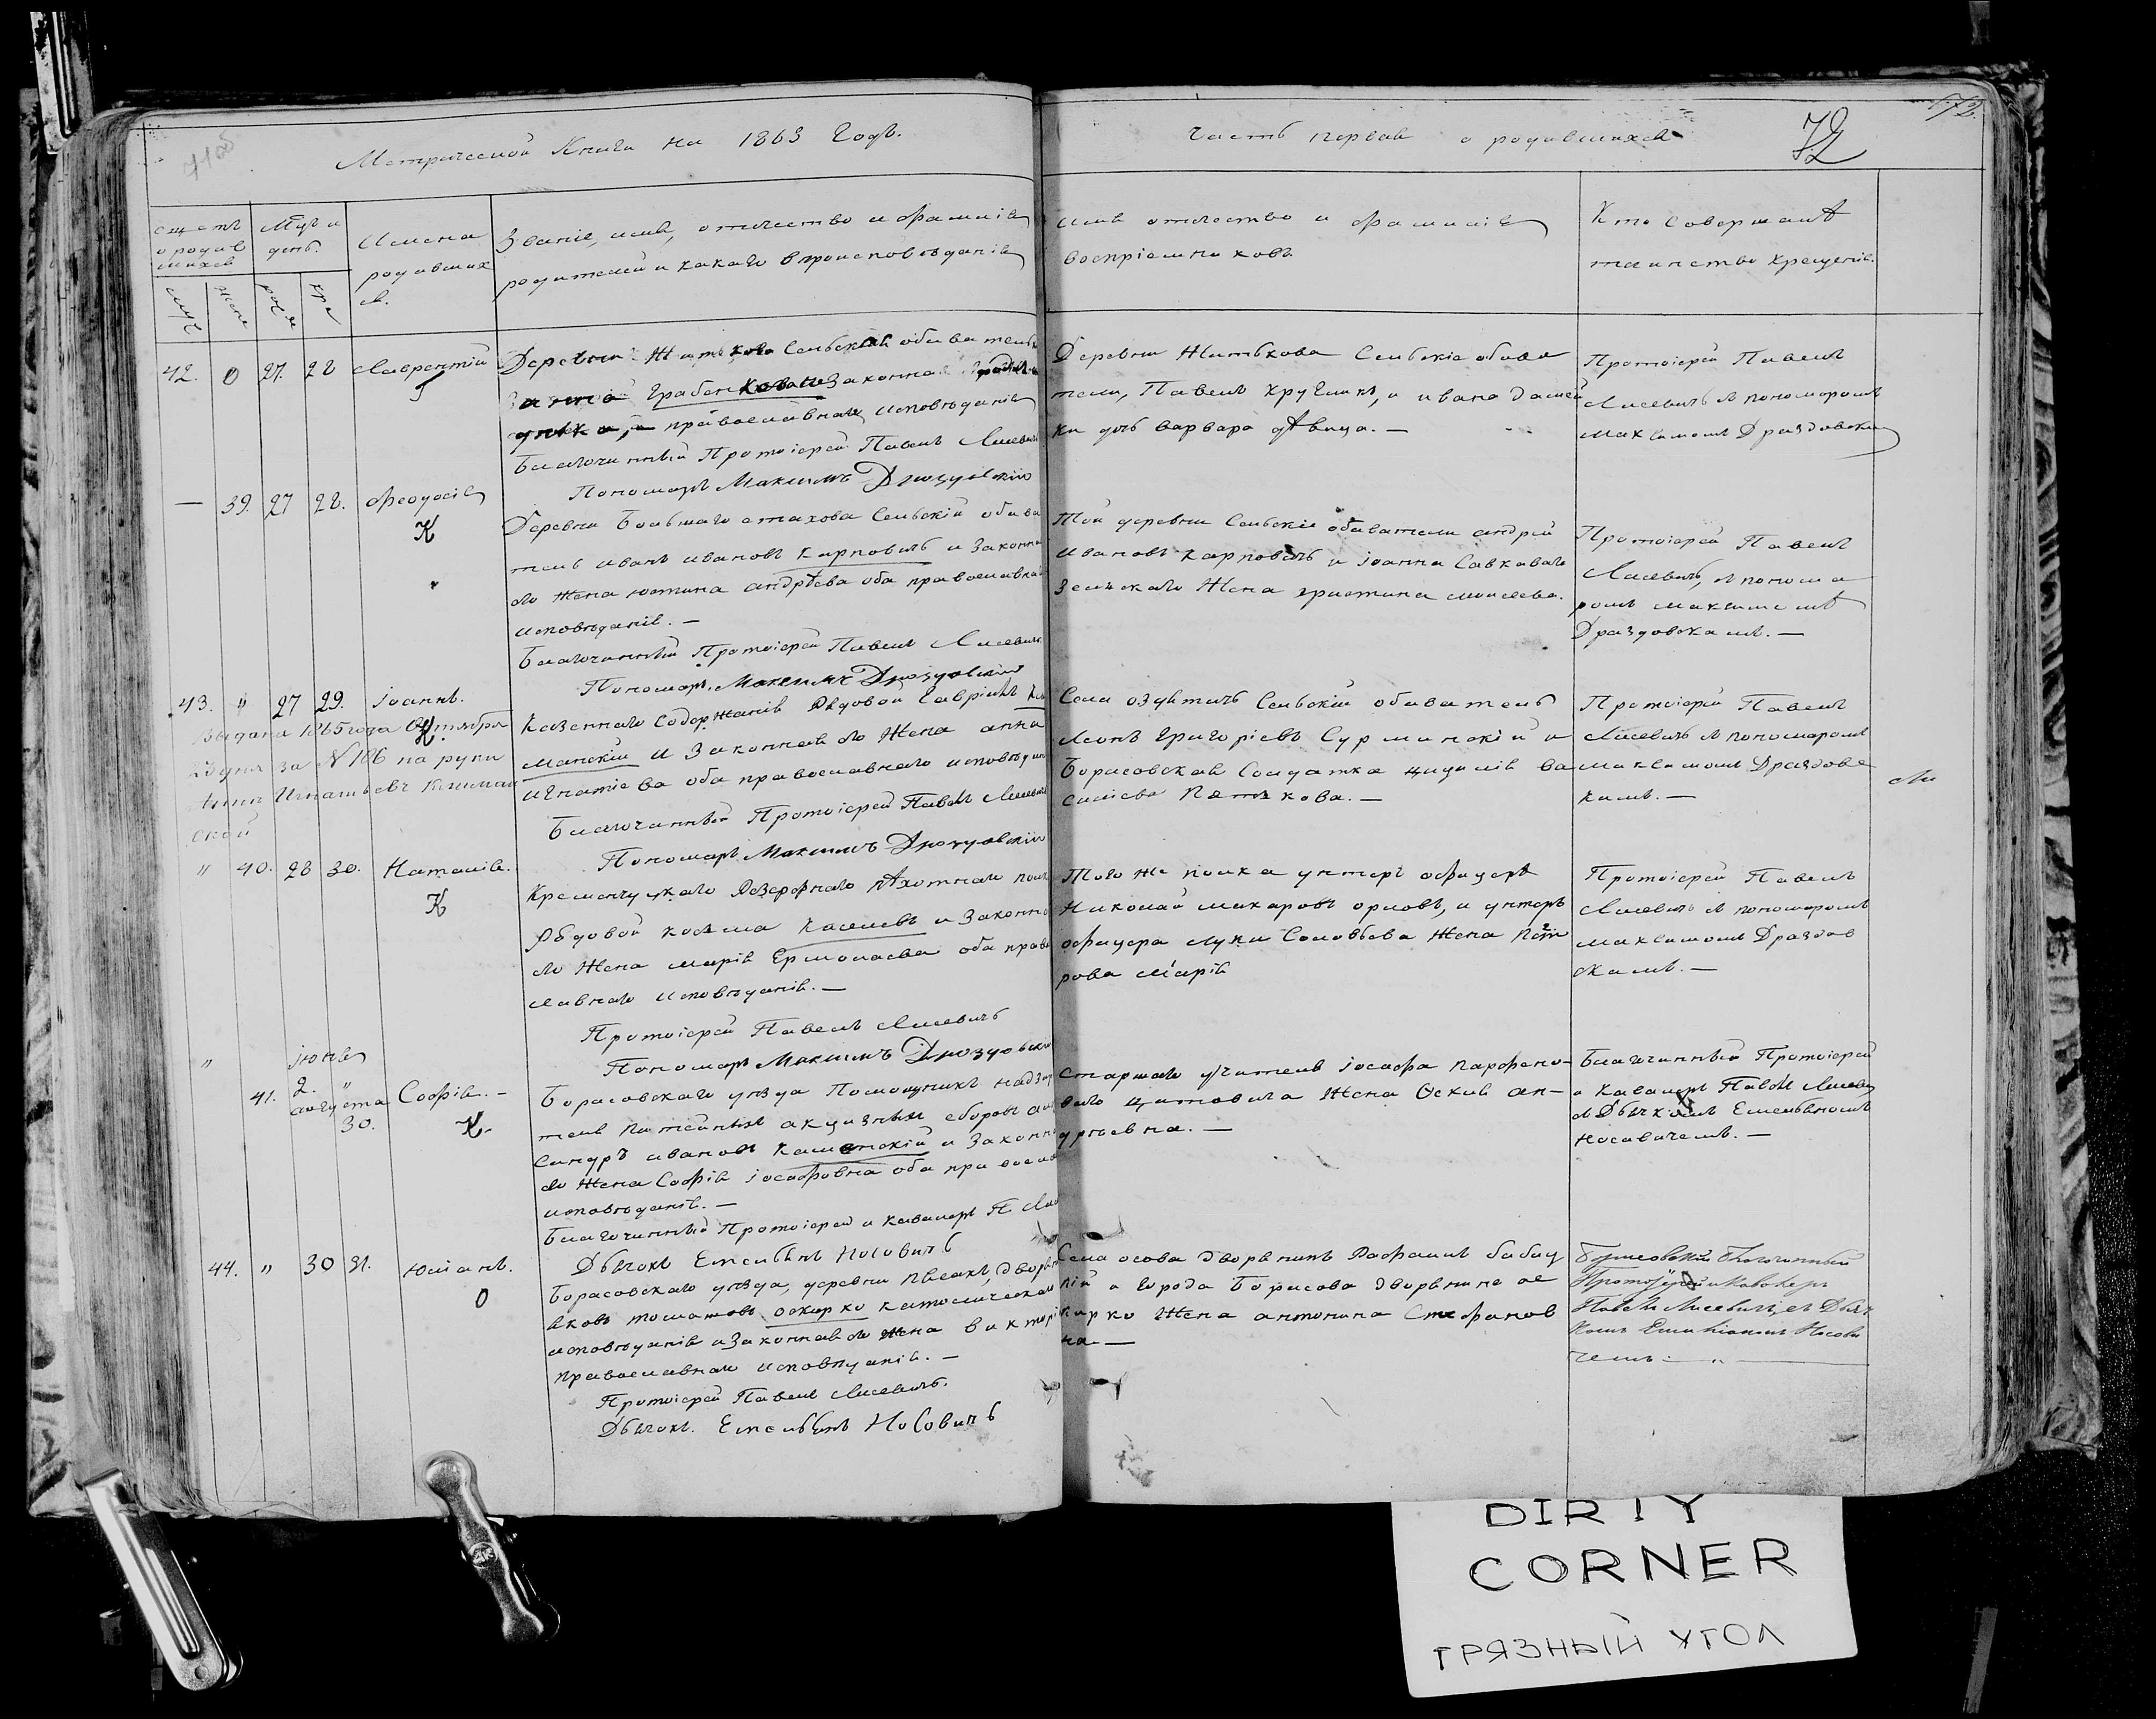 Метрической Книги на 1863 Годъ.
Часть первая о родившихся
72
счетъ
о родив
шихся
Мцъ и
день.
Имена
родивших
ся.
Званіе, имя, отчество и фамилія
родителей и какаго вѣроисповѣданія
имя отчество и фамилія
воспріемниковъ
Кто совершалъ
таинство крещенія.
муж
жен
рож
кре
42. 0 27. 28 Лаврентій
Деревни Житькова Сельской обыватель
Грабенкова Законная
православнаго исповѣданія
Благочинный Протоіерей Павелъ Лисевичъ
Пономарь Максимъ Дроздовскій
Деревни Житькова Сельскіе обыва
тели, Павелъ Кручинъ, и ивана
ки дочь варвара дѣвица. —
Протоіерей Павелъ
Лисевичъ с пономаромъ
максимомъ Драздовски
— 39. 27 28. Феодосія
К
Деревни Большаго стахова Сельскій обыва
тель иванъ ивановъ Карповичъ и законна
его жена юстина андрѣева оба православнаго
исповѣданія. —
Благочинный Протоіерей Павелъ Лисевичъ
Пономарь Максимъ Дроздовскій
Той деревни Сельскіе обыватели андрей
ивановъ Карповичъ и іоанна Савкаваго
жена христина моисеева.
Протоіерей Павелъ
Лисевичъ, с понома
ромъ максимомъ
Драздовскамъ. —
43. " 27 29. іоаннъ.
К
Выдана 1865 года Октября
дня за N 186 на руки
Анны Игнатьевы
ской
Казеннаго Содержанія Рядовой Гавріилъ
манскій и Законная его жена анна
игнатіева оба православнаго исповѣдан
Благочинный Протоіерей Павелъ Лисевичъ
Пономарь Максимъ Дроздовскій
Села оздятичъ Сельскій обыватель
Леонъ Григоріевъ Сурминскій и
Борисовская Солдатка цицилія ва
силіева Петькова. —
Протоіерей Павелъ
Лисевичъ с пономаромъ
максимомъ Драздовс
камъ. —
" 40. 28 30. Наталія.
К
Кременчуцкаго Резерфнаго пѣхотнаго полк
Рядовой косьма Киселевъ и Законна
его жена марія Ермолаева оба право
славнаго исповѣданія. —
Протоіерей Павелъ Лисевичъ
Пономарь Максимъ Дроздовскій
Того же полка унтеръ офицеръ
Николай макаровъ орловъ, и унтеръ
офицера луки Соловьева жена Пет
рова Марія
Протоіерей Павелъ
Лисевичъ с пономаромъ
максимомъ Драздов
скамъ. —
" іюня
41. 2. "
августа
30.
Софія. —
К.
Борисовскаго уѣзда Помощникъ надзир
теля Питейныхъ акцизныхъ сборовъ алек
сандръ ивановъ Каменскій и Законна
его жена Софія іосафовна оба православ
исповѣданія. —
Благочинный Протоіерей и кавалеръ П. Лис
Дьячокъ Емельянъ Носовичъ
старшаго учителя іосафа парфено-
ваго Цитовича жена Фекла ан-
дреевна. —
Благочинный Протоіерей
и Кавалеръ Павелъ Лисевич
с Дьячкомъ Емельяномъ
Носавичемъ. —
44. " 30 31. Юліанъ.
О
Борисовскаго уѣзда, деревни пчельникъ, дворян
яковъ томашовъ оскирко католическаго
исповѣданія и Законная его жена виктори
православнаго исповѣданія. —
Протоіерей Павелъ Лисевичъ.
Дьячокъ. Емельянъ Носовичъ
Села осова дворянинъ Рафаилъ бабиц
кій и Города Борисова дворянина ос
кирко жена антонина Стефанов
на —
Борисовскій Благочинный
Протоіерей и Кавалеръ
Павелъ Лисевичъ, съ Дьяч
комъ Емеліаномъ Носови
чемъ. — " —
DIRTY
CORNER
ГРЯЗНЫЙ УГОЛ